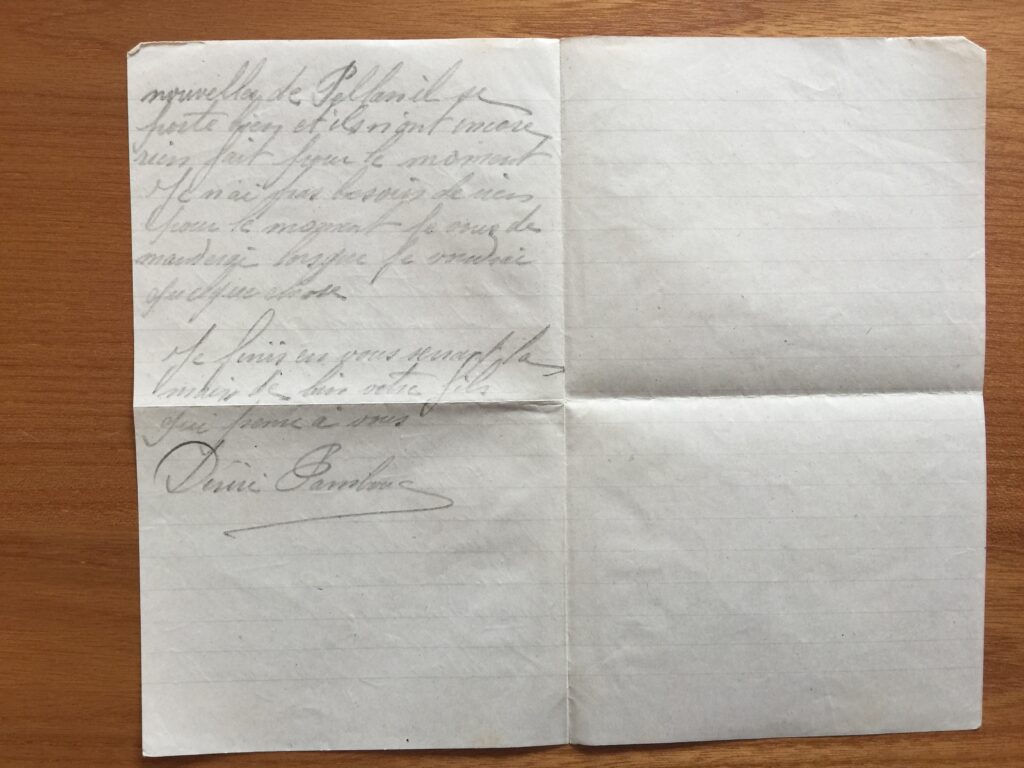 nouvelles de il se
porte bien et ils n'ont encore
rien fait pour le moment
Je n'ai pas besoin de rien
pour le moment je vous de
manderai lorsque je voudrai
quelque chose
Je finis en vous serrant la
main de loin votre fils
qui pense à vous
Désiré